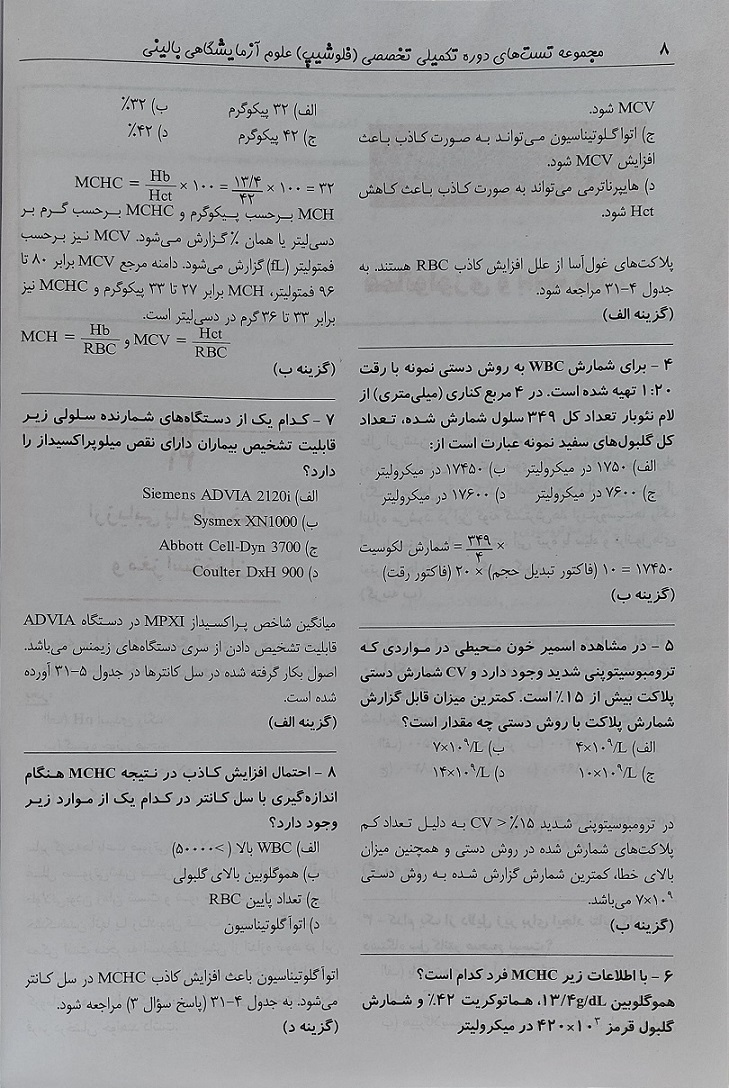 ۸ مجموعه تست‌های دوره تکمیلی تخصصی (فلوشیپ) علوم آزمایشگاهی بالینی
MCV شود.
ج) اتواگلوتیناسیون می‌تواند به صورت کاذب باعث
افزایش MCV شود.
د) هایپرناترمی می‌تواند به صورت کاذب باعث کاهش
Hct شود.
پلاکت‌های غول‌آسا از علل افزایش کاذب RBC هستند. به
جدول ۴–۳۱ مراجعه شود.
(گزینه الف)
۴ – برای شمارش WBC به روش دستی نمونه با رقت
۱:۲۰ تهیه شده است. در ۴ مربع کناری (میلی‌متری) از
لام نئوبار تعداد کل ۳۴۹ سلول شمارش شده، تعداد
کل گلبول‌های سفید نمونه عبارت است از:
الف) ۱۷۵۰ در میکرولیتر ب) ۱۷۴۵۰ در میکرولیتر
ج) ۷۶۰۰ در میکرولیتر د) ۱۷۶۰۰ در میکرولیتر
شمارش لکوسیت = ۳۴۹/۴ ×
(فاکتور رقت) ۲۰ × (فاکتور تبدیل حجم) ۱۰ = ۱۷۴۵۰
(گزینه ب)
۵ – در مشاهده اسمیر خون محیطی در مواردی که
ترومبوسیتوپنی شدید وجود دارد و CV شمارش دستی
پلاکت بیش از ۱۵٪ است. کمترین میزان قابل گزارش
شمارش پلاکت با روش دستی چه مقدار است؟
الف) ۴×۱۰⁹/L ب) ۷×۱۰⁹/L
ج) ۱۰×۱۰⁹/L د) ۱۴×۱۰⁹/L
در ترومبوسیتوپنی شدید CV > ۱۵٪ به دلیل تعداد کم
پلاکت‌های شمارش شده در روش دستی و همچنین میزان
بالای خطا، کمترین شمارش گزارش شده به روش دستی
۷×۱۰⁹ می‌باشد.
(گزینه ب)
۶ – با اطلاعات زیر MCHC فرد کدام است؟
هموگلوبین ۱۳/۴g/dL، هماتوکریت ۴۲٪ و شمارش
گلبول قرمز ۴۲۰×۱۰³ در میکرولیتر
الف) ۳۲ پیکوگرم ب) ۳۲٪
ج) ۴۲ پیکوگرم د) ۴۲٪
MCHC = Hb/Hct × ۱۰۰ = ۱۳/۴/۴۲ × ۱۰۰ = ۳۲
MCH برحسب پیکوگرم و MCHC برحسب گرم بر
دسی‌لیتر یا همان ٪ گزارش می‌شود. MCV نیز برحسب
فمتولیتر (fL) گزارش می‌شود. دامنه مرجع MCV برابر ۸۰ تا
۹۶ فمتولیتر، MCH برابر ۲۷ تا ۳۳ پیکوگرم و MCHC نیز
برابر ۳۳ تا ۳۶ گرم در دسی‌لیتر است.
MCH = Hb/RBC و MCV = Hct/RBC
(گزینه ب)
۷ – کدام یک از دستگاه‌های شمارنده سلولی زیر
قابلیت تشخیص بیماران دارای نقص میلوپراکسیداز را
دارد؟
الف) Siemens ADVIA 2120i
ب) Sysmex XN1000
ج) Abbott Cell-Dyn 3700
د) Coulter DxH 900
میانگین شاخص پراکسیداز MPXI در دستگاه ADVIA
قابلیت تشخیص دادن از سری دستگاه‌های زیمنس می‌باشد.
اصول بکار گرفته شده در سل کانترها در جدول ۵–۳۱ آورده
شده است.
(گزینه الف)
۸ – احتمال افزایش کاذب در نتیجه MCHC هنگام
اندازه‌گیری با سل کانتر در کدام یک از موارد زیر
وجود دارد؟
الف) WBC بالا (>۵۰۰۰۰)
ب) هموگلوبین بالای گلبولی
ج) تعداد پایین RBC
د) اتوآگلوتیناسیون
اتوآگلوتیناسیون باعث افزایش کاذب MCHC در سل کانتر
می‌شود. به جدول ۴–۳۱ (پاسخ سؤال ۳) مراجعه شود.
(گزینه د)